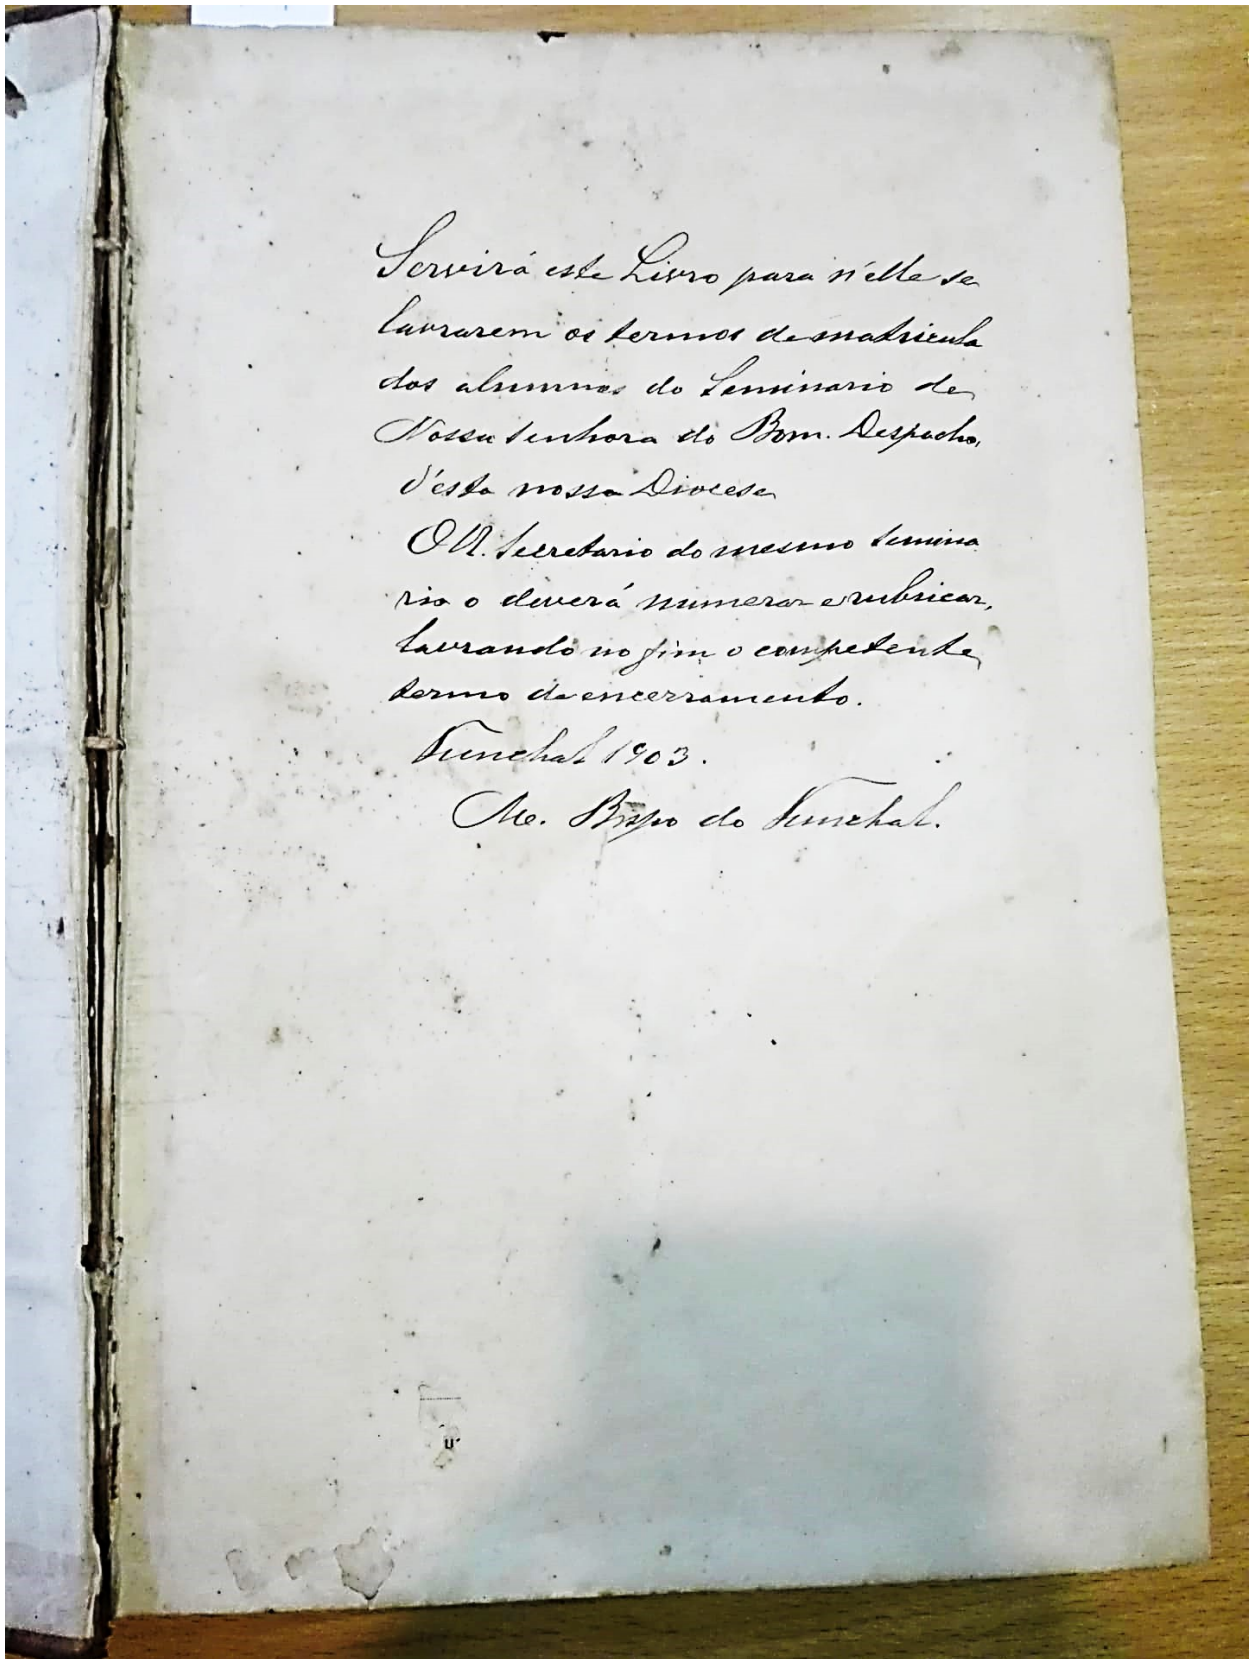 Servirá este Livro para n'elle se
lavrarem os termos de matricula
dos alumnos do Seminario de
Nossa Senhora do Bom. Despacho,
d'esta nossa Diocese
O R. Secretario do mesmo Semina
rio o deverá numerar e rubricar,
lavrando no fim o competente
termo de encerramento.
Funchal 1903.
Bispo do Funchal.